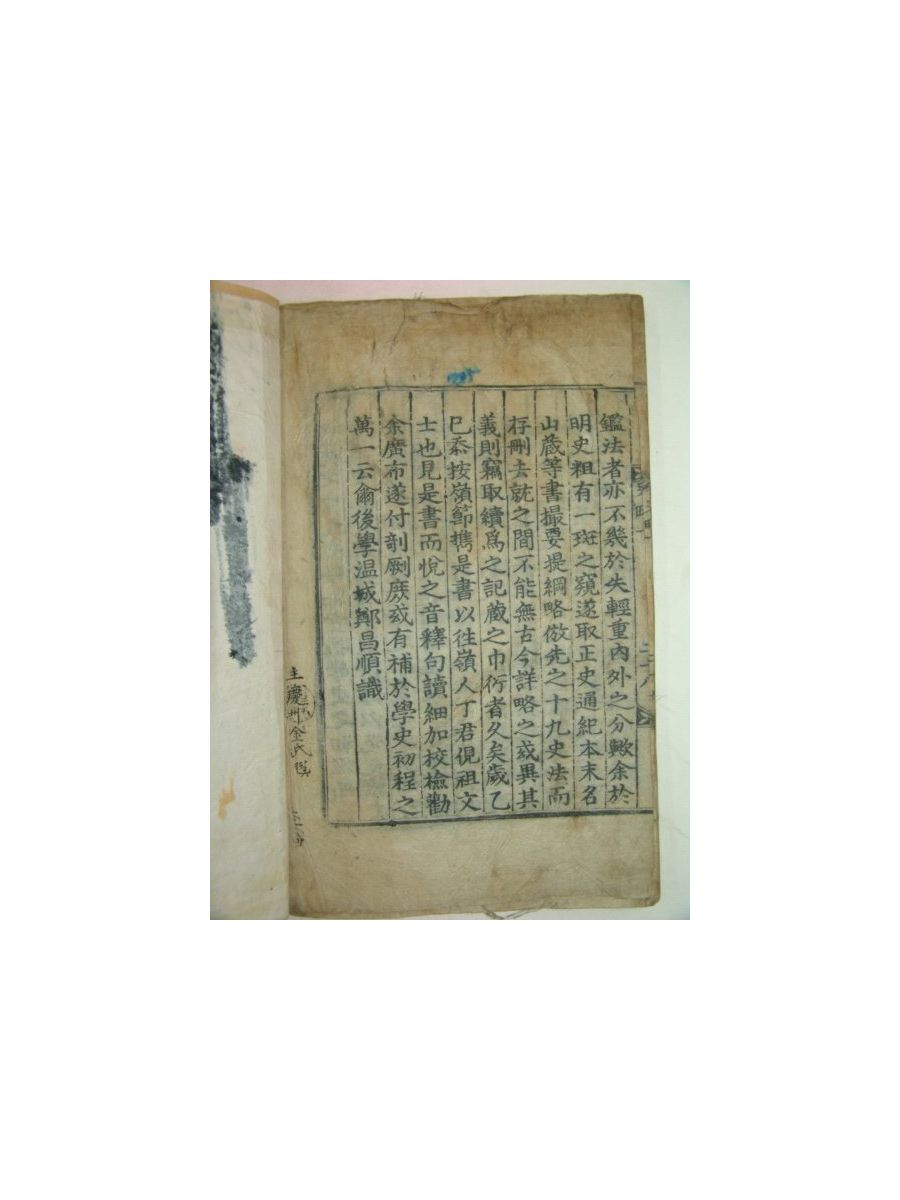 鑑法者亦不幾於失輕重內外之分歟余於
明史粗有一斑之窺遂取正史通紀本末名
山藏等書撮要提綱略倣先之十九史法而
存刪去就之間不能無古今詳略之或異其
義則竊取續爲之記藏之巾衍者久矣歲乙
巳忝按嶺節携是書以徃嶺人丁君俔祖文
士也見是書而悅之音釋句讀細加校檢勸
余廣布遂付剞劂庶或有補於學史初程之
萬一云爾後學温城鄭昌順識
主慶州金氏